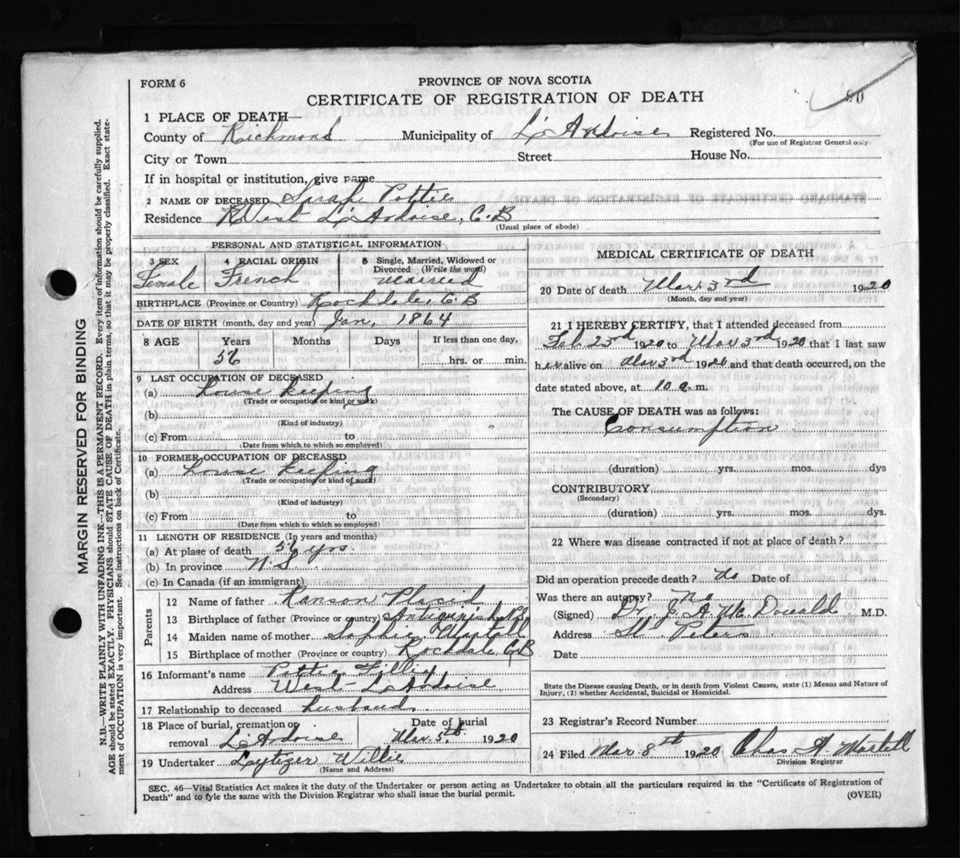 80
FORM 6
PROVINCE OF NOVA SCOTIA
CERTIFICATE OF REGISTRATION OF DEATH
1 PLACE OF DEATH—
County of Richmond Municipality of L'Ardoise Registered No.
(For use of Registrar General only)
City or Town Street House No.
If in hospital or institution, give name
2 NAME OF DECEASED Sarah Pottie
Residence West L'Ardoise, C.B
(Usual place of abode)
PERSONAL AND STATISTICAL INFORMATION
3 SEX Female
4 RACIAL ORIGIN French
5 Single, Married, Widowed or Divorced (Write the word) Married
BIRTHPLACE (Province or Country) Rockdale, C.B
DATE OF BIRTH (month, day and year) Jan, 1864
8 AGE Years 56 Months Days If less than one day, hrs. or min.
9 LAST OCCUPATION OF DECEASED
(a) House Keeping
(Trade or occupation or kind of work)
(b)
(Kind of industry)
(c) From to
(Date from which to which so employed)
10 FORMER OCCUPATION OF DECEASED
(a) House Keeping
(Trade or occupation or kind of work)
(b)
(Kind of industry)
(c) From to
(Date from which to which so employed)
11 LENGTH OF RESIDENCE (In years and months)
(a) At place of death 56 yrs.
(b) In province N.S
(c) In Canada (if an immigrant)
Parents
12 Name of father Ranson Placid
13 Birthplace of father (Province or country) Antigonish
14 Maiden name of mother Sophie Martell
15 Birthplace of mother (Province or country) Rockdale C.B
16 Informant's name Pottie
Address West L'Ardoise
17 Relationship to deceased husband
18 Place of burial, cremation or removal L'Ardoise Date of burial Mar. 5th, 1920
19 Undertaker Willis
(Name and Address)
MEDICAL CERTIFICATE OF DEATH
20 Date of death Mar. 3rd 1920
(Month, day and year)
21 I HEREBY CERTIFY, that I attended deceased from
Feb. 23rd 1920 to Mar 3rd 1920 that I last saw
her alive on Mar 3rd 1920 and that death occurred, on the
date stated above, at 10 a. m.
The CAUSE OF DEATH was as follows:
Consumption
(duration) yrs. mos. dys
CONTRIBUTORY
(Secondary)
(duration) yrs. mos. dys.
22 Where was disease contracted if not at place of death?
Did an operation precede death? No Date of
Was there an autopsy? No
(Signed) Dr. J. A. McDonald M.D.
Address St Peters
Date
State the Disease causing Death, or in death from Violent Causes, state (1) Means and Nature of
Injury, (2) whether Accidental, Suicidal or Homicidal.
23 Registrar's Record Number
24 Filed Mar. 8th 1920 Chas A Martell
Division Registrar
SEC. 46—Vital Statistics Act makes it the duty of the Undertaker or person acting as Undertaker to obtain all the particulars required in the "Certificate of Registration of
Death" and to fyle the same with the Division Registrar who shall issue the burial permit.
(OVER)
MARGIN RESERVED FOR BINDING
N.B.—WRITE PLAINLY WITH UNFADING INK—THIS IS A PERMANENT RECORD. Every item of information should be carefully supplied.
AGE should be stated EXACTLY. PHYSICIANS should STATE CAUSE OF DEATH in plain terms, so that it may be properly classified. Exact state-
ment of OCCUPATION is very important. See instructions on back of Certificate.